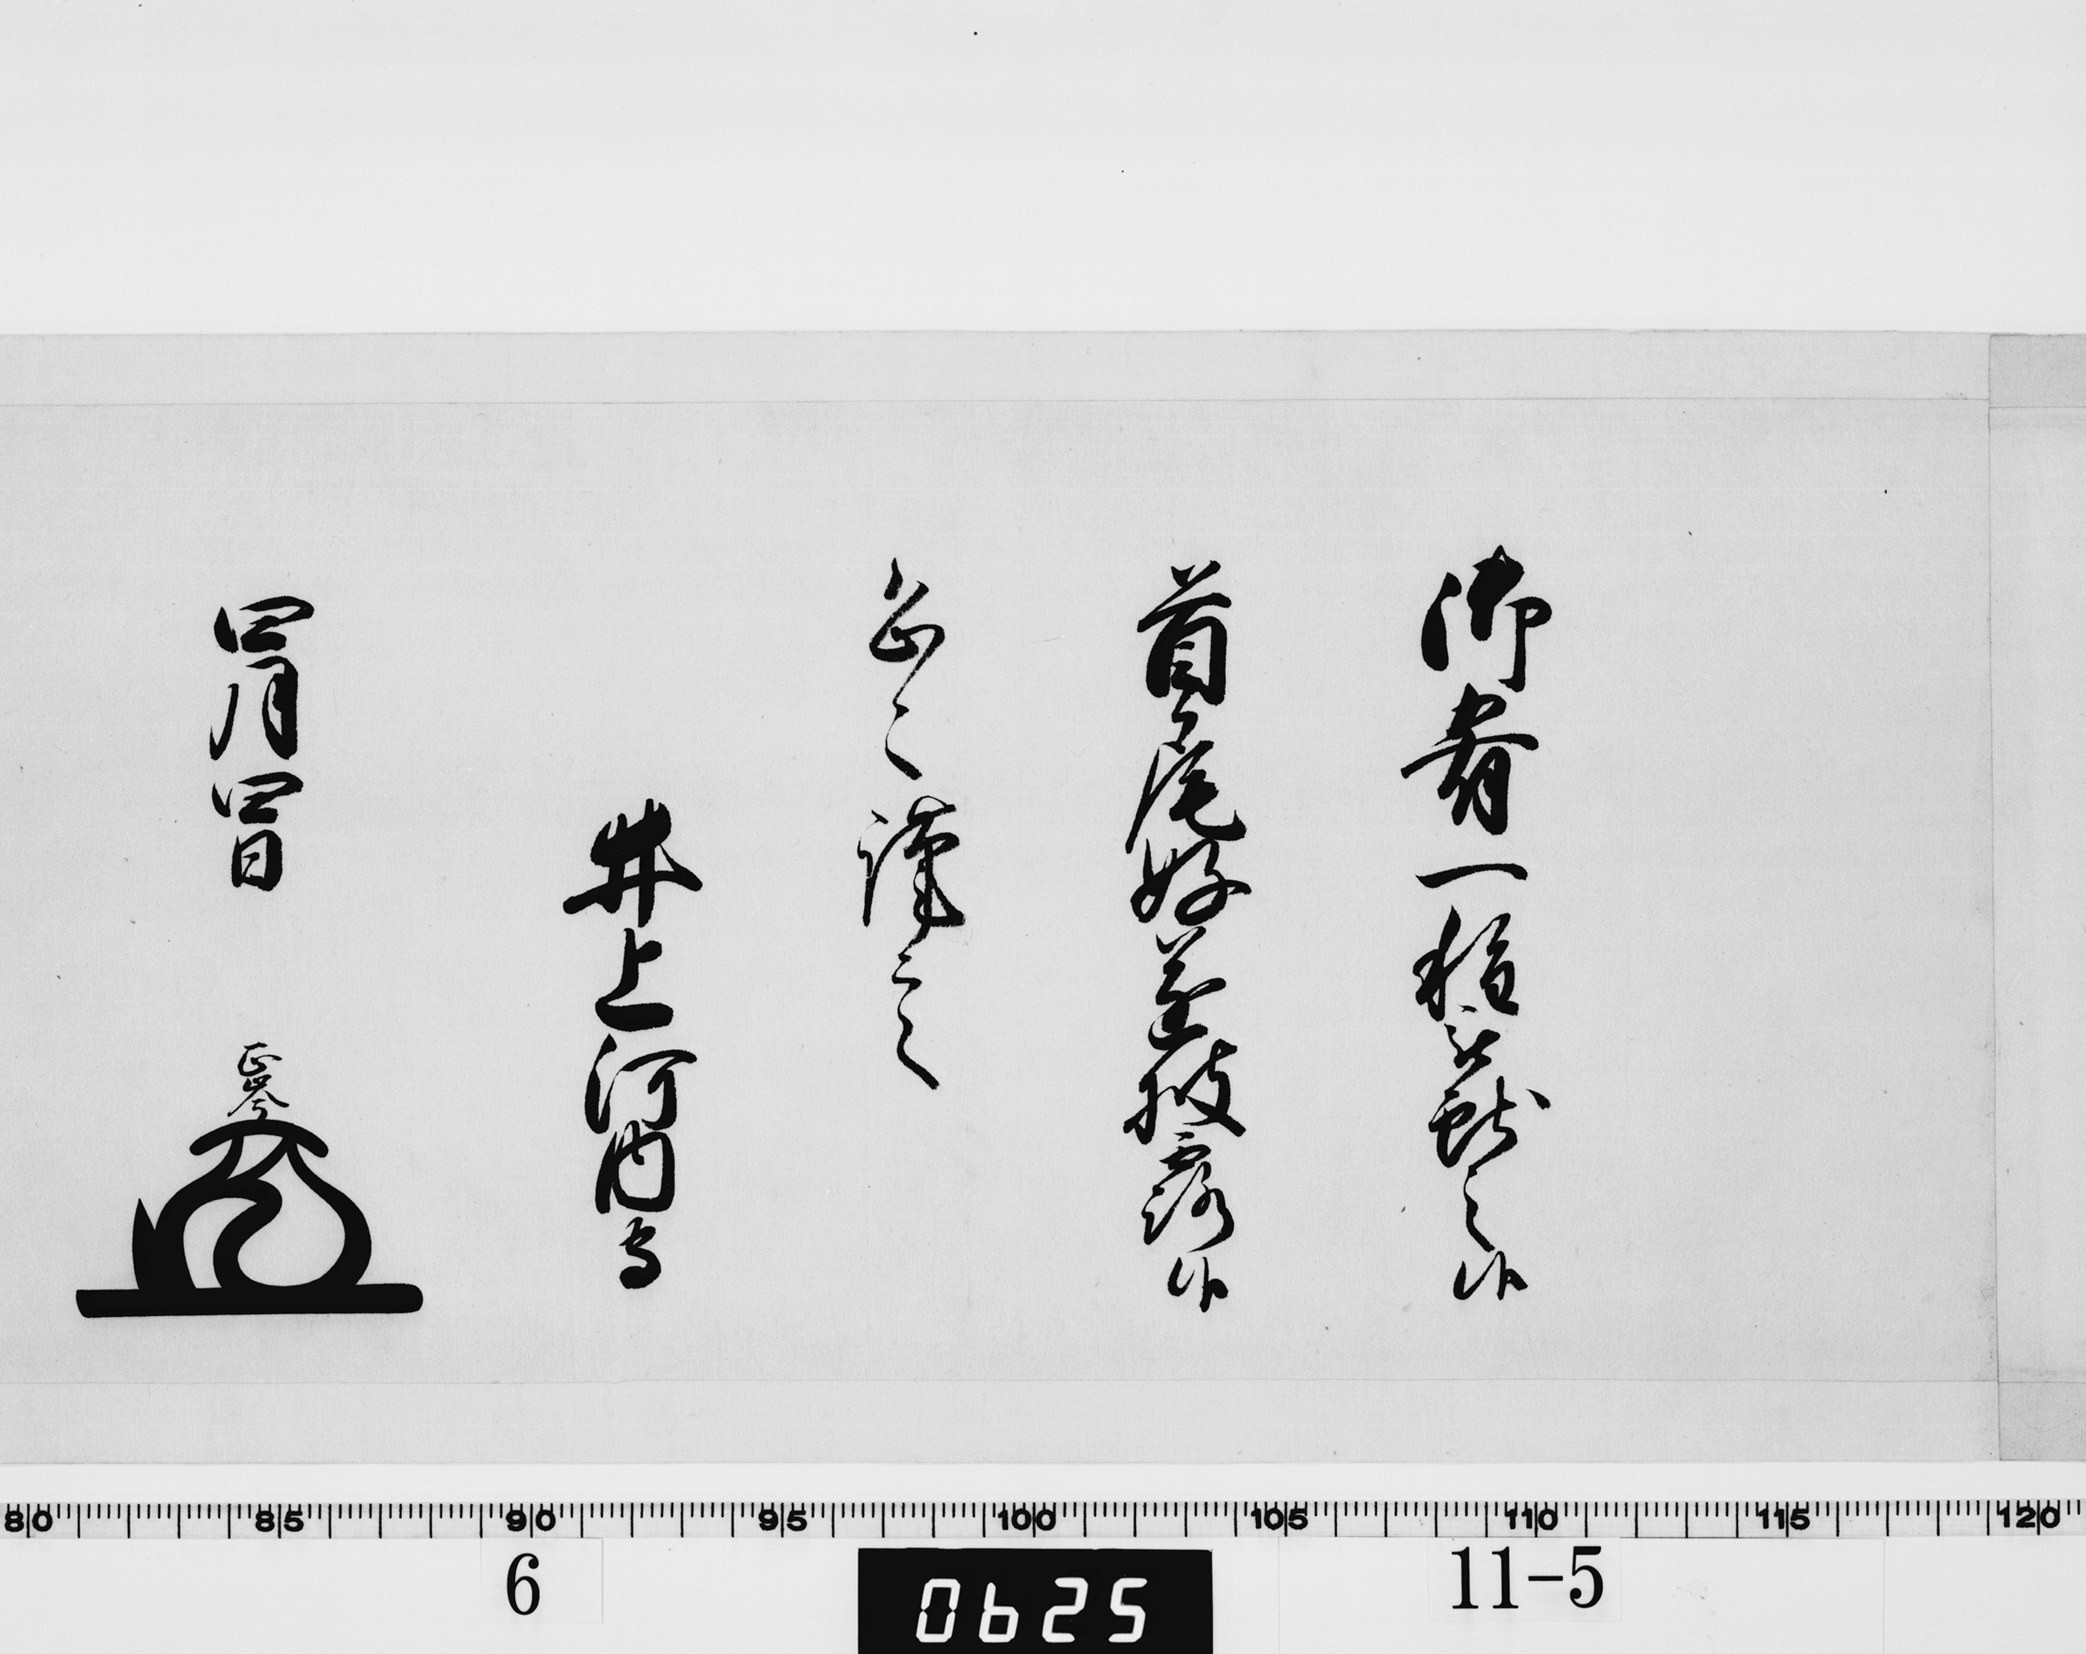 御肴一種被献之候
首尾好遂披露候
恐々謹言
井上河内守
四月四日 正岑
80 85 90 95 100 105 110 115 120
6
0625
11-5